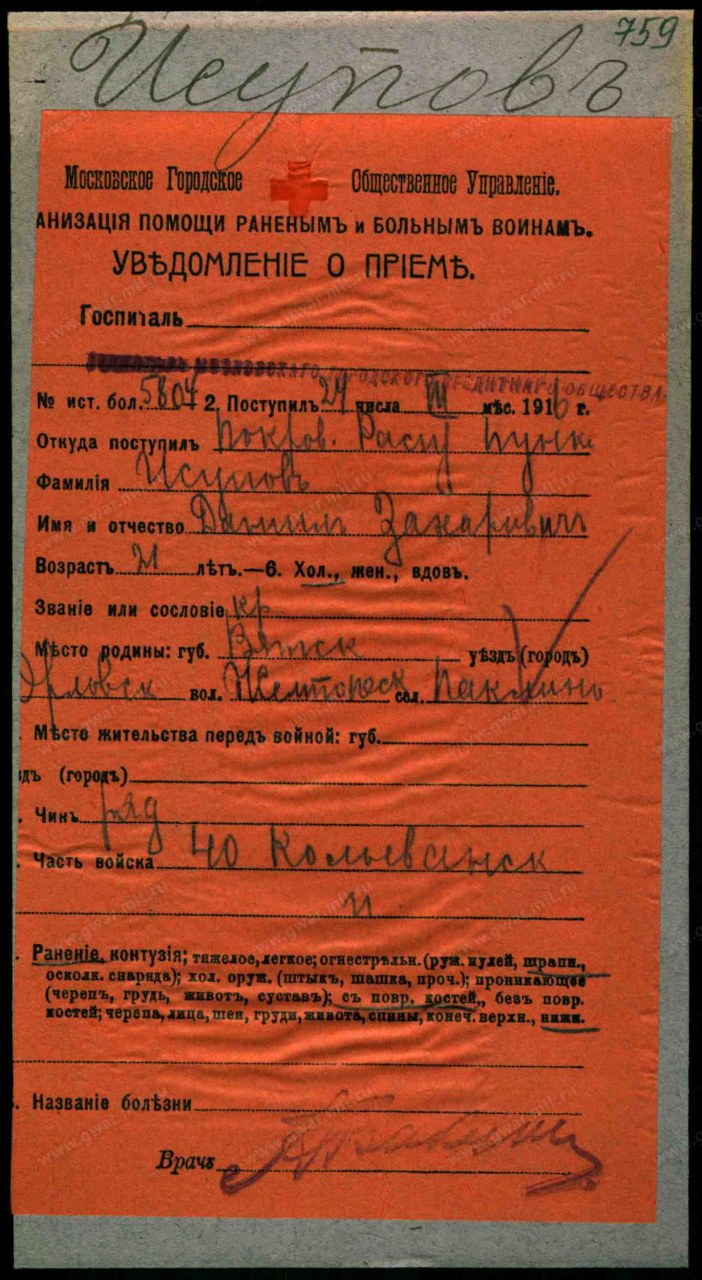 759
Исуповъ
Московское Городское Общественное Управленіе.
АНИЗАЦІЯ ПОМОЩИ РАНЕНЫМЪ и БОЛЬНЫМЪ ВОИНАМЪ.
УВѢДОМЛЕНІЕ О ПРІЕМѢ.
Госпиталь
МОСКОВСКАГО ГОРОДСКОГО КРЕДИТНАГО ОБЩЕСТВА
№ ист. бол. 5807 2. Поступилъ 24 числа III мѣс. 1916 г.
Откуда поступилъ Покров. Расп Пунк
Фамилія Исуповъ
Имя и отчество Данилъ Захаровичъ
Возрастъ 21 лѣтъ.—6. Хол., жен., вдовъ.
Званіе или сословіе кр
Мѣсто родины: губ. Вятск уѣздъ (городъ)
Орловск вол. сел.
Мѣсто жительства передъ войной: губ.
здъ (городъ)
Чинъ ряд
Часть войска 40 Колыванск
п
Раненіе, контузія; тяжелое, легкое; огнестрѣльн. (руж. пулей, шрапн.,
осколк. снаряда); хол. оруж. (штыкъ, шашка, проч.); проникающее
(черепъ, грудь, животъ, суставъ); съ повр. костей, безъ повр.
костей; черепа, лица, шеи, груди, живота, спины, конеч. верхн., нижн.
Названіе болѣзни
Врачъ